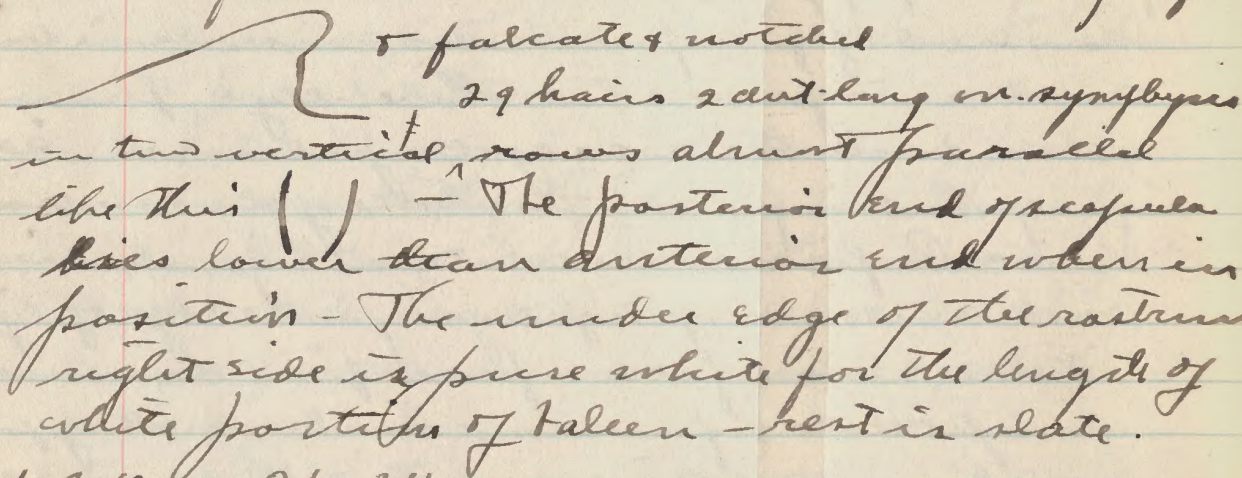 & falcate & notched
29 hairs 2 cm long on symphyses
in two vertical rows almost parallel
like this ( ) - The posterior end of scapula
lies lower than anterior end when in
position - The under edge of the rostrum
right side is pure white for the length of
white portion of baleen - rest is slate.